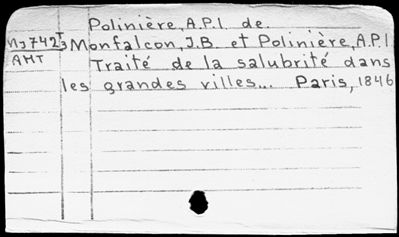 Polinière, A.P.I. de.
NJ742T3 Monfalcon, J.B. et Polinière, A.P.I
AMT Traité de la salubrité dans
les grandes villes... Paris, 1846